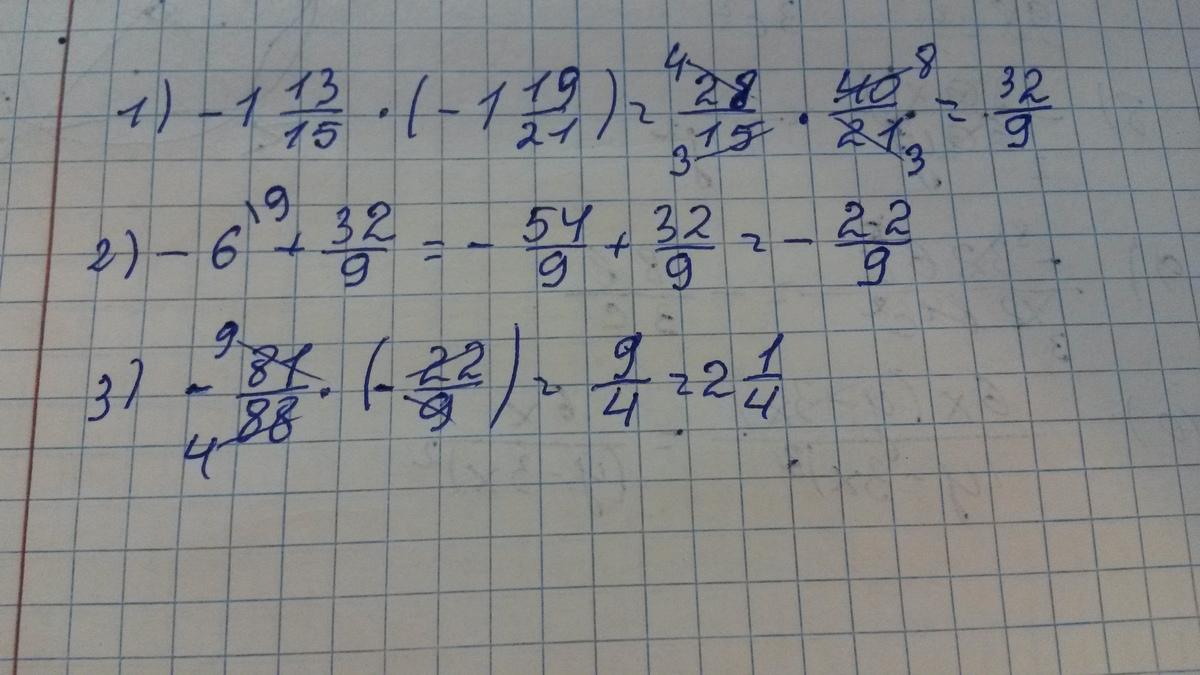 1) - 1 13/15 · (- 1 19/21) = 4 28/15 3 · 40 8/21 3 = 32/9
2) - 6 \9 + 32/9 = - 54/9 + 32/9 = - 22/9
3) - 9 81/88 4 · (- 22/9) = 9/4 = 2 1/4